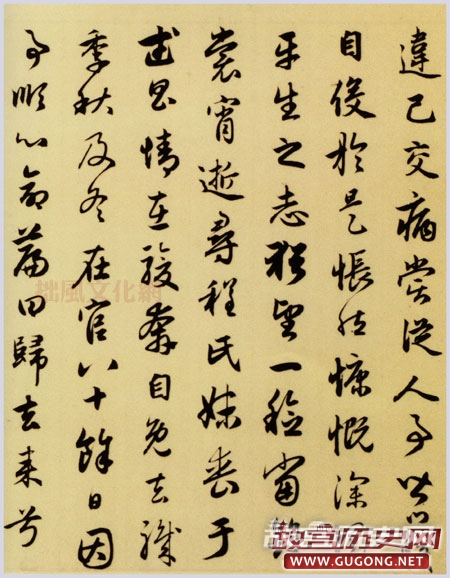 違己交病嘗從人事皆口
自役於是悵然慷慨深
平生之志猶望一稔當斂
裳宵逝尋程氏妹喪于
武昌情在駿奔自免去職
季秋及冬在官八十餘日因
事順心命篇曰歸去來兮
拙風文化網
故宫历史网
WWW.GUGONG.NET